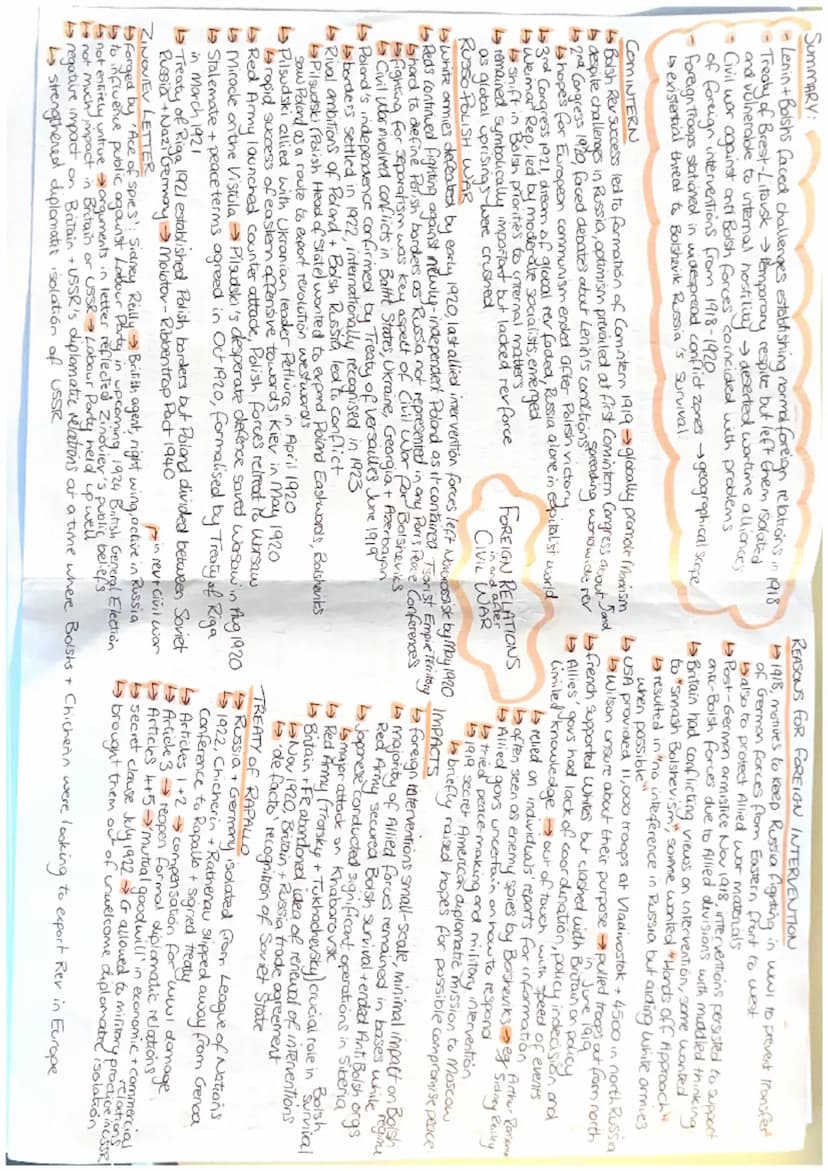 SUMMARY:
- Lenin + Bolshs faced challenges establishing normal foreign relations in 1918
- Treaty of Brest-Litovsk → temporary respite but left them isolated
and vulnerable to internal hostility → deserted wartime alliances
- Civil war against anti Bolsh forces coincided with problems
of foreign interventions from 1918-1920
- Foreign Troops stationed in widespread conflict zones → geographical scope
↳ existential threat to Bolshevik Russia's survival
COMINTERN
↳ Bolsh Rev success led to formation of Comintern 1919 → globally promote Marxism
↳ despite challenges in Russia, optimism prevailed at first Comintern Congress about
spreading worldwide rev
↳ 2nd Congress 1920, faced debates about Lenin's conditions
↳ hopes for European communism ended after Polish victory
↳ 3rd Congress 1921, dream of global rev faded, Russia alone in capitalist world
↳ Weimar Rep, led by moderate socialists, emerged
↳ shift in Bolsh priorities to internal matters
↳ remained symbolically important but lacked rev force
as global uprisings were crushed
RUSSO-POLISH WAR
↳ White armies defeated by early 1920, last allied intervention forces left Novorossisk by May 1920
↳ Reds continued fighting against newly-independent Poland as it contained Tsarist Empire Territory
↳ hard to define Polish borders as Russia not represented in any Paris Peace Conferences
↳ fighting for separatism was key aspect of Civil War for Bolsheviks
↳ Civil War involved conflicts in Baltic States, Ukraine, Georgia + Azerbayan
↳ Poland's independence confirmed by Treaty of Versailles June 1919
↳ borders settled in 1922, internationally recognised in 1923
↳ Rival ambitions of Poland + Bolsh Russia led to conflict
↳ Pilsudski (Polish Head of State) wanted to expand Poland Eastwards, Bolsheviks
saw Poland as a route to export revolution westwards
↳ Pilsudski allied with Ukranian leader Petliura in April 1920
↳ rapid success of eastern offensive towards Kiev in May 1920
↳ Red Army launched counter attack, Polish forces retreat to Warsaw
↳ Miracle on the Vistula → Pilsudski's desperate defence saved Warsaw in Aug 1920
↳ Stalemate + peace terms agreed in Oct 1920, formalised by Treaty of Riga
in March 1921
↳ Treaty of Riga 1921 established Polish borders but Poland divided between Soviet
Russia + Nazi Germany → Molotov-Ribbentrop Pact 1940
ZINOVIEV LETTER
↳ forged by 'Ace of spies': Sidney Reilly → British agent, right wing, active in Russia
in rev + civil war
↳ to influence public against Labour Party in upcoming 1924 British General Election
↳ not entirely untrue → arguments in letter reflected Zinoviev's public beliefs
↳ not much impact in Britain or USSR → Labour Party held up well
↳ negative impact on Britain + USSR's diplomatic relations at a time where Bolshs + Chicherin were looking to export Rev in Europe
↳ strengthened diplomatic isolation of USSR
FOREIGN RELATIONS
in and after
CIVIL WAR
REASONS FOR FOREIGN INTERVENTION
↳ 1918, motives to keep Russia fighting in WW1 to prevent transfer
of German forces from Eastern front to west
↳ also to protect Allied war materials
↳ Post-German armistice Nov 1918, interventions persisted to support
anti-Bolsh forces due to Allied divisions with muddled thinking
↳ Britain had conflicting views on intervention, some wanted
to "smash Bolshevism", some wanted "Hands off Approach"
↳ resulted in "no interference in Russia but aiding White armies
when possible"
↳ USA provided 11,000 troops at Vladivostok + 4500 in north Russia
↳ Wilson unsure about their purpose → pulled troops out from north
in June 1919
↳ French supported Whites but clashed with Britain on policy
↳ Allies' govs had lack of coordination, policy indecision and
limited knowledge → out of touch with speed of events
↳ relied on individuals' reports for information
↳ often seen as enemy spies by Bolsheviks → eg Arthur Ransome
Sidney Reilly
↳ Allied govs uncertain on how to respond
↳ tried peace-making and military intervention
↳ 1919 secret American diplomatic mission to Moscow
↳ briefly raised hopes for possible compromise peace
IMPACTS
↳ foreign interventions small-scale, minimal impact on Bolsh
regime
↳ majority of Allied forces remained in bases while
Red Army secured Bolsh survival + ended Anti Bolsh orgs
↳ Japanese conducted significant operations in Siberia
↳ major attack on Khabarovsk
↳ Red Army (Trotsky + Tukhachevsky) crucial role in Bolsh
survival
↳ Britain + FR abandoned idea of renewal of interventions
↳ Nov 1920, Britain + Russia trade agreement
↳ 'de facto' recognition of Soviet State
TREATY OF RAPALLO
↳ Russia + Germany isolated from League of Nations
↳ 1922, Chicherin + Rathenau slipped away from Genoa
Conference to Rapallo + signed treaty
↳ Articles 1+2 → compensation for WW1 damage
↳ Article 3 → reopen formal diplomatic relations
↳ Articles 4+5 → mutual goodwill in economic + commercial
relations
↳ secret clause July 1922 → G allowed to military practice in USSR
↳ brought them out of unwelcome diplomatic isolation